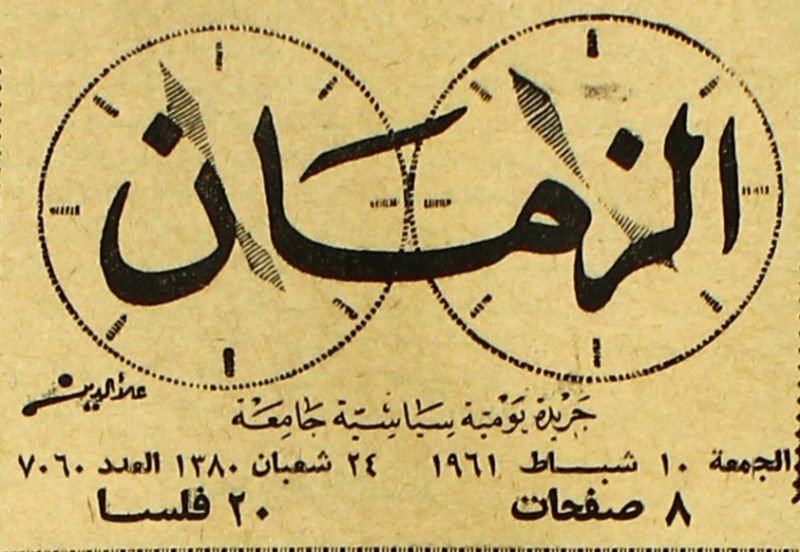 الزمان
علاء الدين
جَريدة يَوميَّة سيَاسيَّة جَامِعَة
الجمعة ١٠ شبــاط ١٩٦١ ٢٤ شعبان ١٣٨٠ العدد ٧٠٦٠
٨ صفحات ٢٠ فلسا